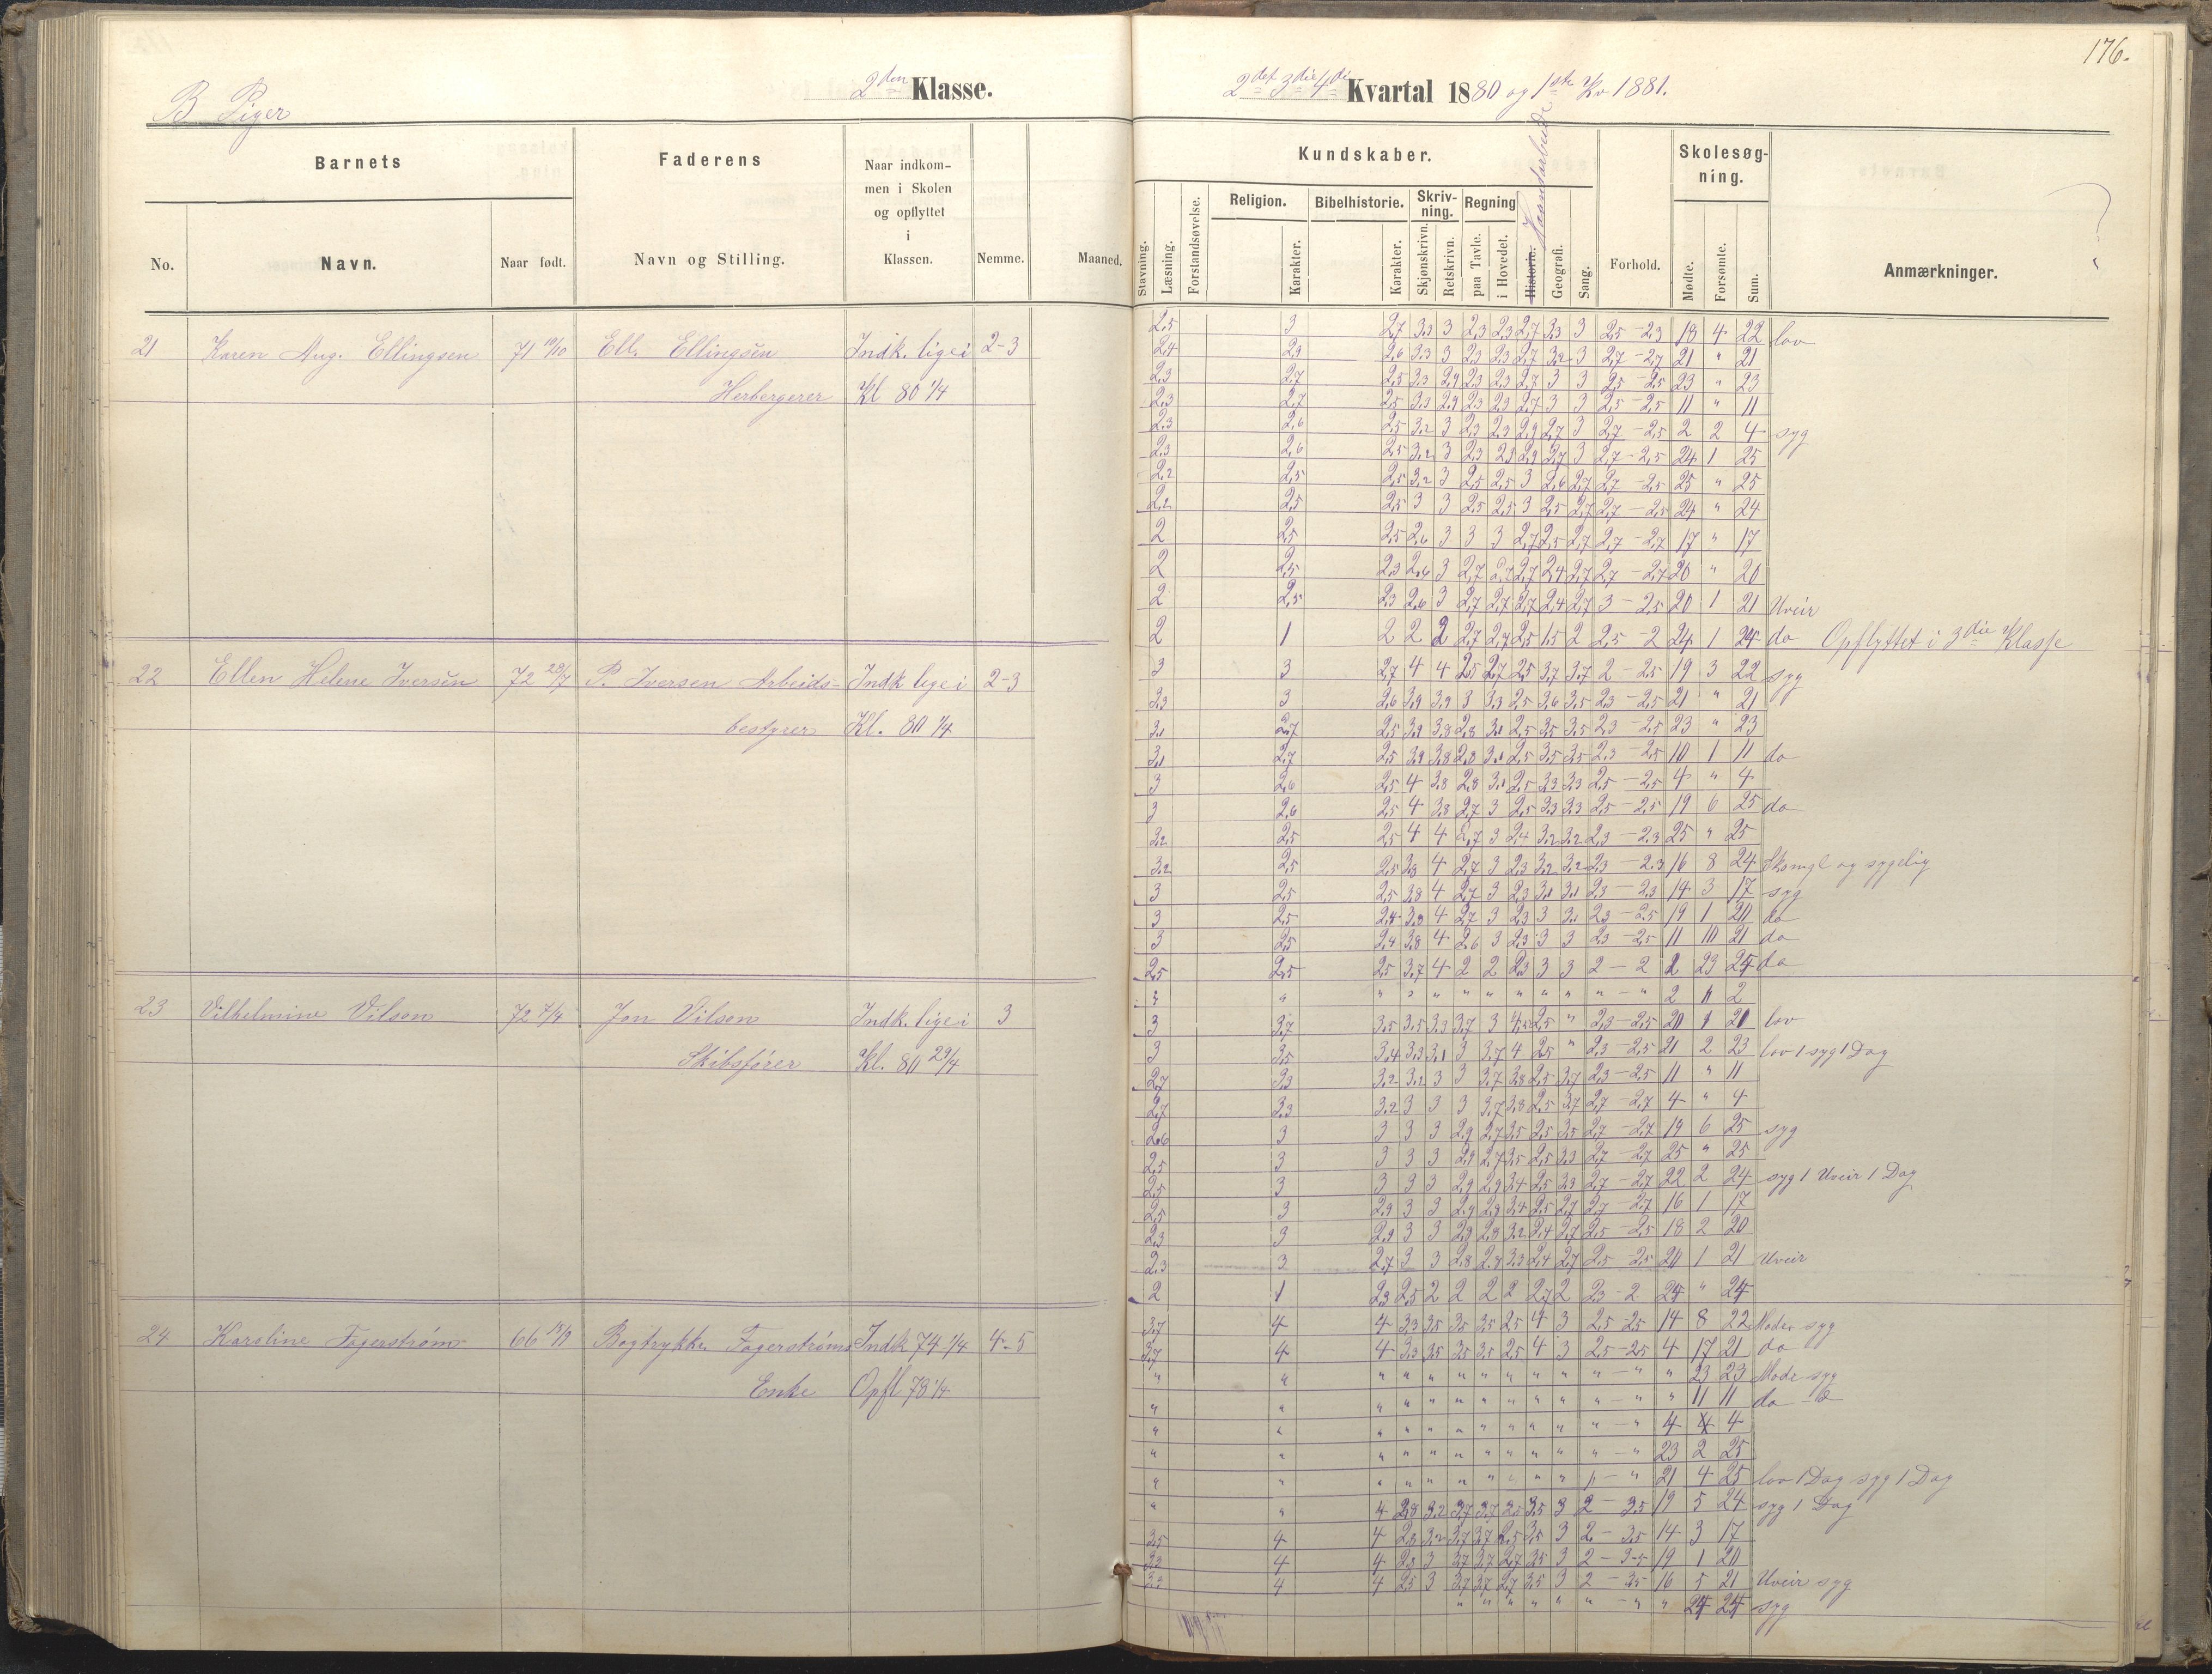 176.
B Piger
2den Klasse.
2det 3die 4de Kvartal 1880 og 1ste Kv 1881.
Barnets
Faderens
Naar indkommen i Skolen og opflyttet i Klassen.
Nemme.
Maaned.
No.
Navn.
Naar født.
Navn og Stilling.
Kundskaber.
Stavning.
Læsning.
Forstandsøvelse.
Religion.
Karakter.
Bibelhistorie.
Karakter.
Skrivning.
Skjønskrivn.
Retskrivn.
Regning
paa Tavle.
i Hovedet.
Historie.
Haandarbeide
Geografi.
Sang.
Forhold.
Skolesøgning.
Mødte.
Forsømte.
Sum.
Anmærkninger.
21 Karen Aug. Ellingsen 71 Ell. Ellingsen Indk. lige i 2-3
Herbergerer Kl 80 1/4
2,5 3 2,7 3,3 3 2,3 2,3 2,7 3,3 3 2,5-2,3 18 4 22 lov
2,4 2,9 2,6 3,3 3 2,3 2,3 2,7 3,2 3 2,7-2,7 21 " 21
2,3 2,7 2,5 3,3 2,9 2,3 2,3 2,7 3 3 2,5-2,5 23 " 23
2,3 2,7 2,5 3,3 2,9 2,3 2,3 2,7 3 3 2,5-2,5 11 " 11
2,3 2,6 2,5 3,2 3 2,3 2,3 2,9 2,7 3 2,7-2,5 2 2 4 syg
2,3 2,6 2,5 3,2 3 2,3 2,9 2,7 3 2,7-2,5 24 1 25
2,2 2,5 2,5 3,2 3 2,5 2,5 3 2,6 2,7 2,7-2,5 25 " 25
2,2 2,5 2,5 3 3 2,5 2,5 3 2,5 2,7 2,7-2,5 24 " 24
2 2,5 2,5 2,6 3 3 3 2,7 2,5 2,7 2,7-2,7 17 " 17
2 2,5 2,3 2,6 3 2,7 2,7 2,7 2,4 2,7 2,7-2,7 20 " 20
2 2,5 2,3 2,6 3 2,7 2,7 2,7 2,4 2,7 3-2,5 20 1 21 Uveir
2 1 2 2 2 2,7 2,7 2,5 1,5 2 2,5-2 24 1 24 do Opflyttet i 3die Klasse
22 Ellen Helene Iversen 72 28/7 P. Iversen Arbeids- Indk lige i 2-3
bestyrer Kl. 80 1/4
3 3 2,7 4 4 2,5 2,7 2,5 3,7 3,7 2-2,5 19 3 22 syg
3,3 3 2,6 3,9 3,9 3 3,3 2,5 3,6 3,5 2,3-2,5 21 " 21
3,1 2,7 2,5 3,9 3,8 2,8 3,1 2,5 3,5 3,5 2,3-2,5 23 " 23
3,1 2,7 2,5 3,9 3,8 2,8 3,1 2,5 3,5 3,5 2,3-2,5 10 1 11 do
3 2,6 2,5 4 3,8 2,8 3,1 2,5 3,3 3,3 2,5-2,5 4 " 4
3 2,6 2,5 4 3,8 2,7 3 2,5 3,3 3,3 2,5-2,5 19 6 25 do
3,2 2,5 2,5 4 4 2,7 3 2,4 3,2 3,2 2,3-2,3 25 " 25
3,2 2,5 2,5 3,9 4 2,7 3 2,3 3,2 3,2 2,3-2,3 16 8 24 Skomgl og sygelig
3 2,5 2,5 3,8 4 2,7 3 2,3 3,1 3,1 2,3-2,3 14 3 17 syg
3 2,5 2,4 3,8 4 2,7 3 2,3 3 3,1 2,3-2,5 19 1 20 do
3 2,5 2,4 3,8 4 2,6 3 2,3 3 3 2,3-2,5 11 10 21 do
2,5 2,5 2,5 3,7 4 2 2 2,3 3 3 2-2 1 23 24 do
23 Vilhelmine Vilson 72 7/4 Jon Vilson Indk. lige i 3
Skibsfører Kl. 80 29/4
" " " " " " " " " " "-" 2 " 2
3 3,7 3,5 3,5 3,3 3,7 3 2,5 " 2,3-2,5 20 1 21 lov
3 3,5 3,4 3,3 3,1 3 3,7 4 2,5 " 2,3-2,5 21 2 23 lov 1 syg 1 Dag
2,7 3,3 3,2 3,2 3 3 3,7 3,8 2,5 3,7 2,3-2,5 11 " 11
2,7 3,3 3,2 3 3 3 3,7 3,8 2,5 3,7 2,7-2,7 4 " 4
2,6 3 3 3 3 2,9 2,7 3,5 2,5 3,5 2,7-2,7 19 6 25 syg
2,5 3 3 3 3 2,9 2,7 3,5 2,5 3,3 2,7-2,7 25 " 25
2,5 3 3 3 3 2,9 2,9 3,4 2,5 3,3 2,7-2,7 22 2 24 syg 1 Uveir 1 Dag
2,5 3 2,9 3 3 2,9 2,9 3,4 2,5 2,7 2,7-2,7 16 1 17
2,3 3 2,9 3 3 2,9 2,8 3,2 2,4 2,7 2,5-2,5 18 2 20
2,3 3 2,7 3 3 2,8 2,8 3,3 2,4 2,7 2,5-2,5 20 1 21 Uveir
2 1 2,3 2,5 2 2 2 2 2,7 2 2,3-2 24 " 24
24 Karoline Fagerstrøm 66 Bogtrykk. Fagerstrøms Indk 74 1/4 4-5
Enke Opfl 78 1/4
3,7 4 4 3,3 3,5 3,5 3,5 2,5 4 3 2,5-2,5 14 8 22 Moder syg
3,7 4 4 3,3 3,5 3,5 3,5 2,5 4 3 2,5-2,5 4 17 21 do
" " " " " " " " " " "-" " 23 23 Mode syg
" " " " " " " " " " "-" " 11 11 do
" " " " " " " " " " "-" 4 4
" " " " " " " " " " "-" 23 2 25
" " " " " " " " " " "-" 21 4 25 lov 1 Dag syg 1 Dag
" " 4 2,8 3,2 3,7 3,7 2,5 3,5 3 2-3,5 19 5 24 syg 1 Dag
3,5 4 4 2,8 3,2 3,7 3,7 2,5 3,5 3 2-3,5 14 3 17
3,3 4 4 2,8 3 3,7 3,7 2,7 3,5 3 2-3,5 19 1 20
3,3 4 4 2,5 3 3,7 3,7 2,7 3,5 3 2-3,5 16 5 21 Uveir syg
" " " " " "-" " 24 24 syg